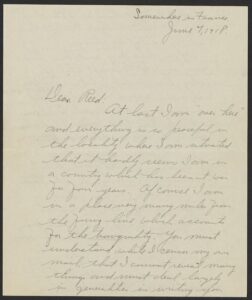 Somewhere in France
June 7, 1918.
Dear Reed
At last I am "over here"
and everything is so peaceful in
the locality where I am situated
that it hardly seems I am in
a country which has been at war
for four years. Of course I am
in a place very many miles from
the firing line which accounts
for the tranquility. You must
understand while I censor my own
mail that I cannot reveal many
things and must deal largely
in generalities in writing you